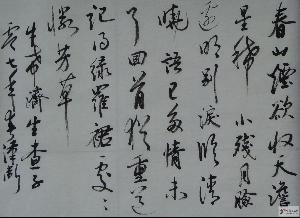 春山煙欲收天澹
星稀小殘月臉
邊明別淚臨清
曉語已多情未
了回首猶重道
記得綠羅裙處々
憐芳草
牛希濟生查子
零七年